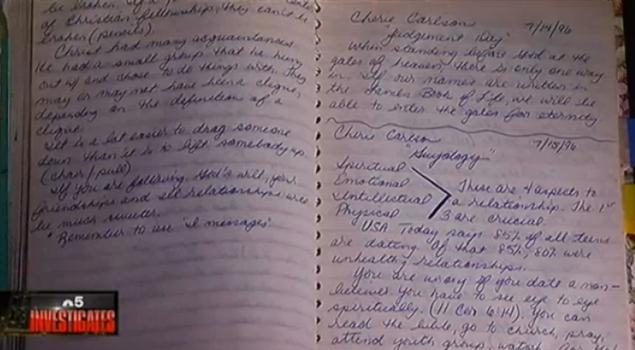 of Christian fellowship, they can't be
broken (pencils).
Christ had many acquaintances.
He had a small group that he hung
out w/ and chose to do things with. They
may or may not have been a clique,
depending on the definition of a
clique.
It is a lot easier to drag someone
down than it is to lift somebody up.
(chair/pull)
If you are following God's will, your
friendships and all relationships will
be much sweeter.
* Remember to use "I messages"
Cherie Carlson 7/14/96
"Judgement Day"
When standing before God at the
gates of heaven, there is only one way
in. If our names are written in
the Lamb's Book of Life, we will be
able to enter the gates for eternity
Cherie Carlson 7/15/96
"Guyology"
Spiritual
Emotional
Intellectual
Physical
There are 4 aspects to
a relationship. The 1st
3 are crucial.
USA Today says 85% of all teens
are dating of that 85%, 80% were
unhealthy relationships.
You are wrong if you date a non-
believer. You have to see eye to eye
spiritually. (II Cor 6:14). You can
read the bible, go to church, pray,
attend youth group, watch
5
INVESTIGATES